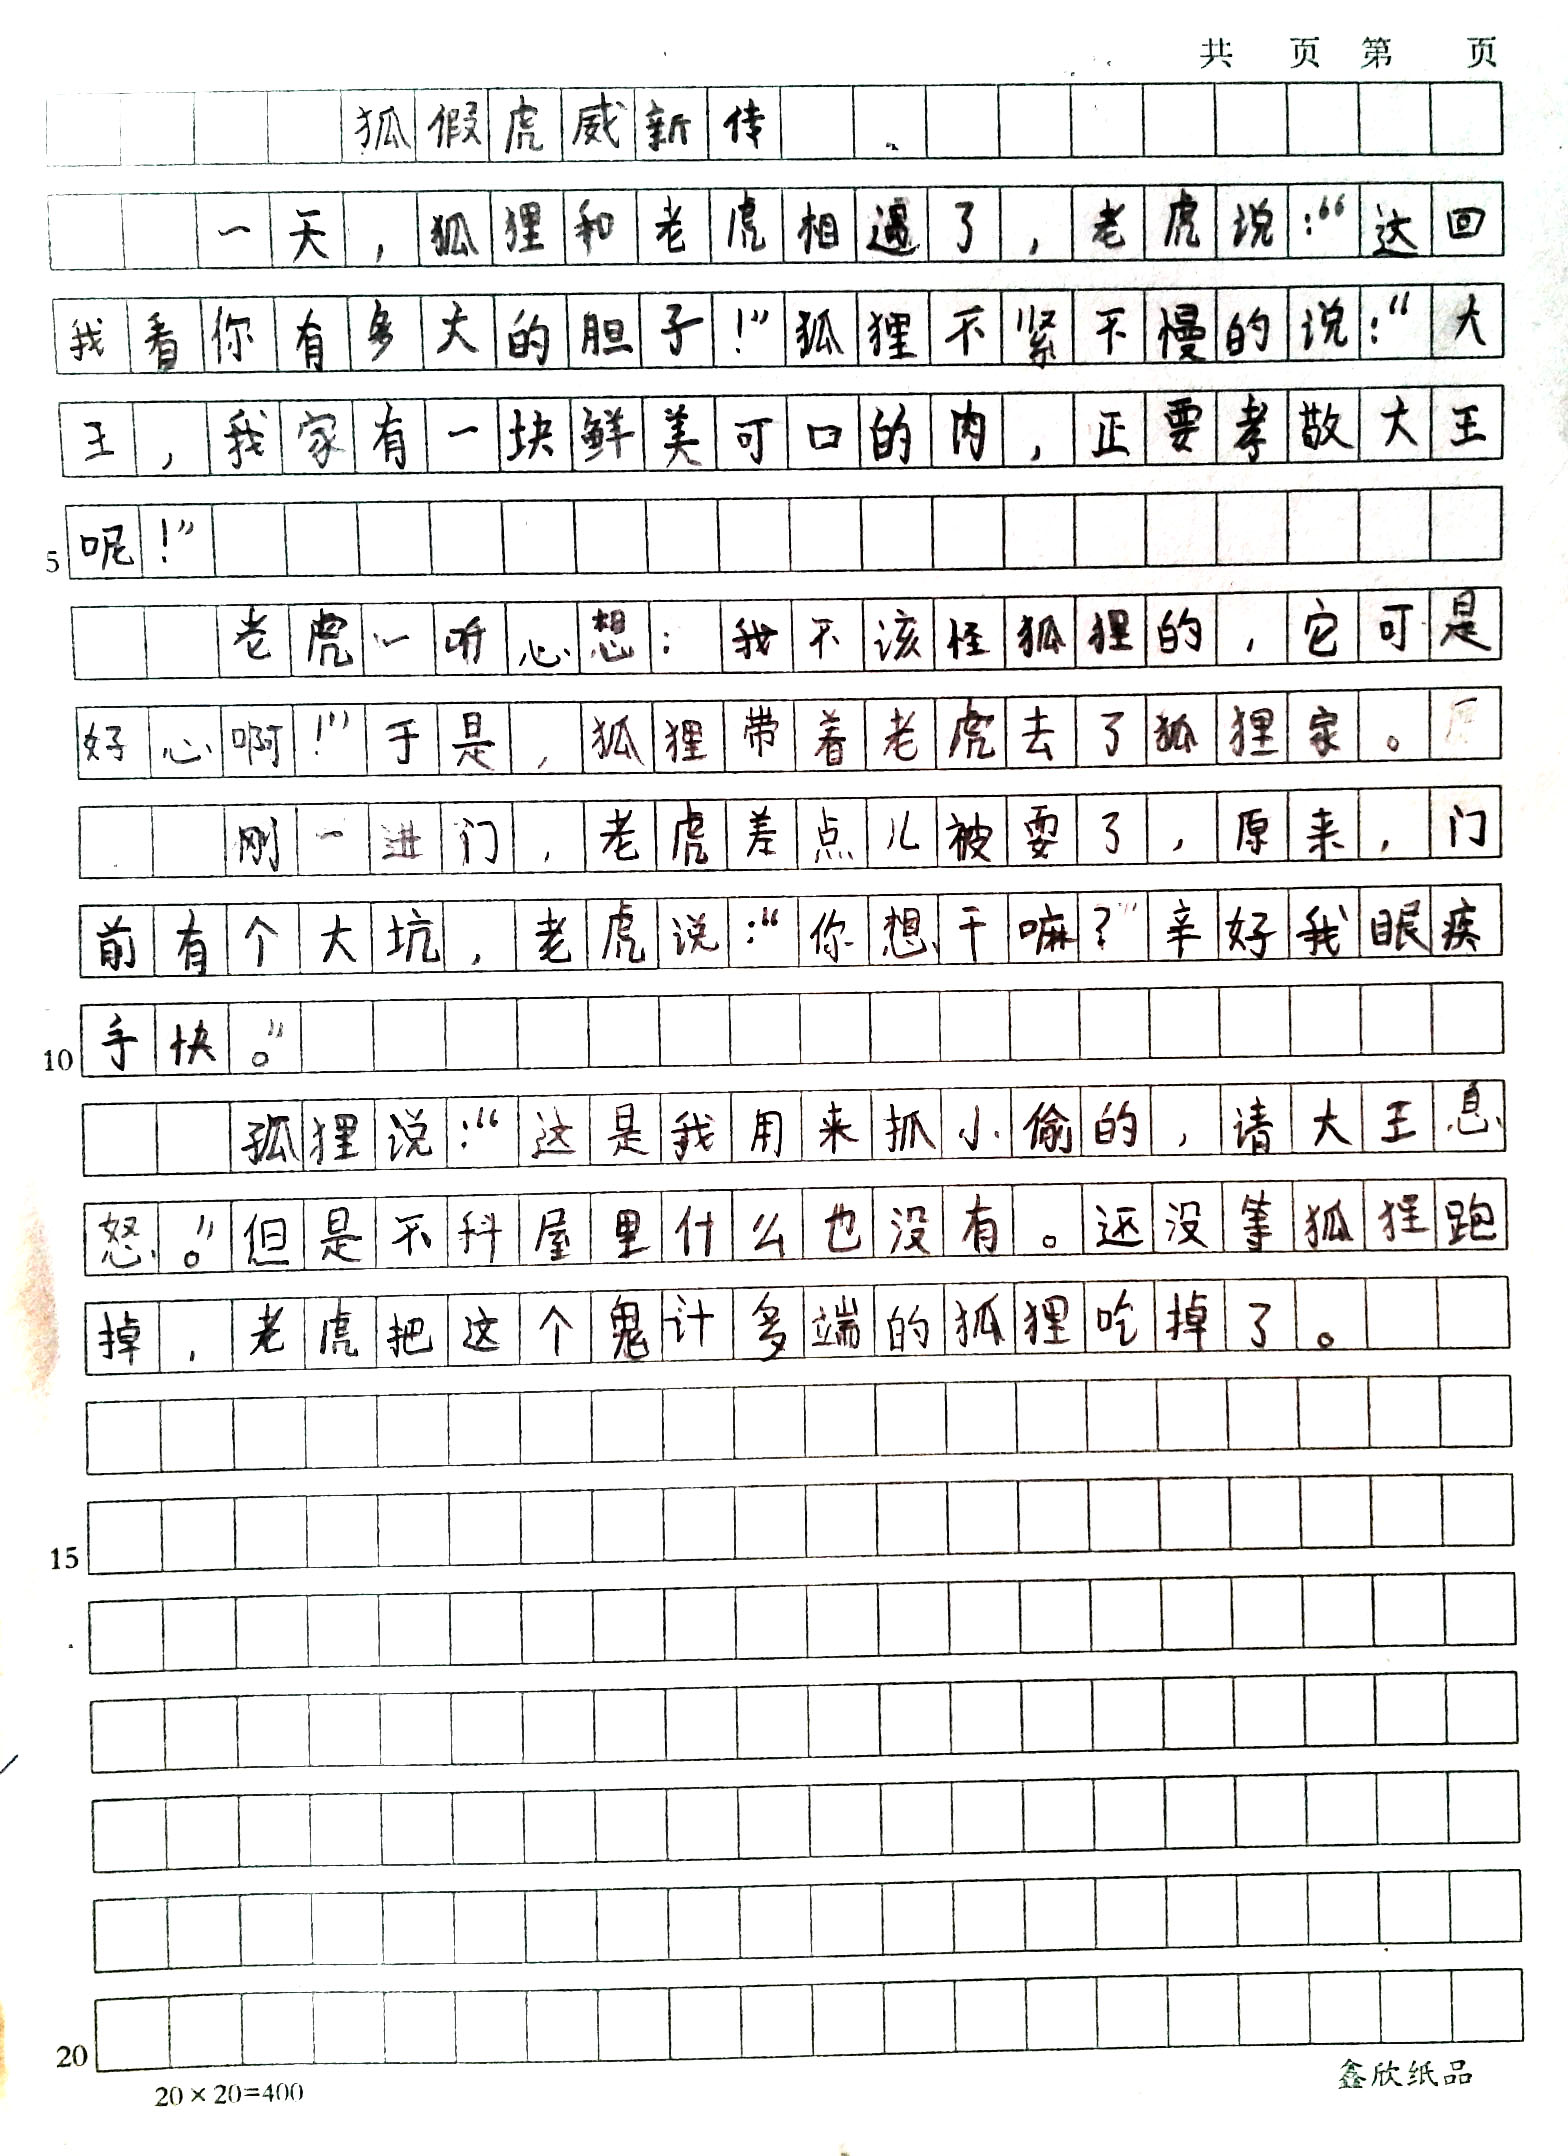 共 页 第 页
狐假虎威新传
一天，狐狸和老虎相遇了，老虎说：“这回
我看你有多大的胆子！”狐狸不紧不慢的说：“大
王，我家有一块鲜美可口的肉，正要孝敬大王
5 呢！”
老虎一听心想：我不该怪狐狸的，它可是
好心啊！”于是，狐狸带着老虎去了狐狸家。
刚一进门，老虎差点儿被耍了，原来，门
前有个大坑，老虎说：“你想干嘛？”辛好我眼疾
10 手快。”
狐狸说：“这是我用来抓小偷的，请大王息
怒。”但是不料屋里什么也没有。还没等狐狸跑
掉，老虎把这个鬼计多端的狐狸吃掉了。
15
20
20×20=400
鑫欣纸品